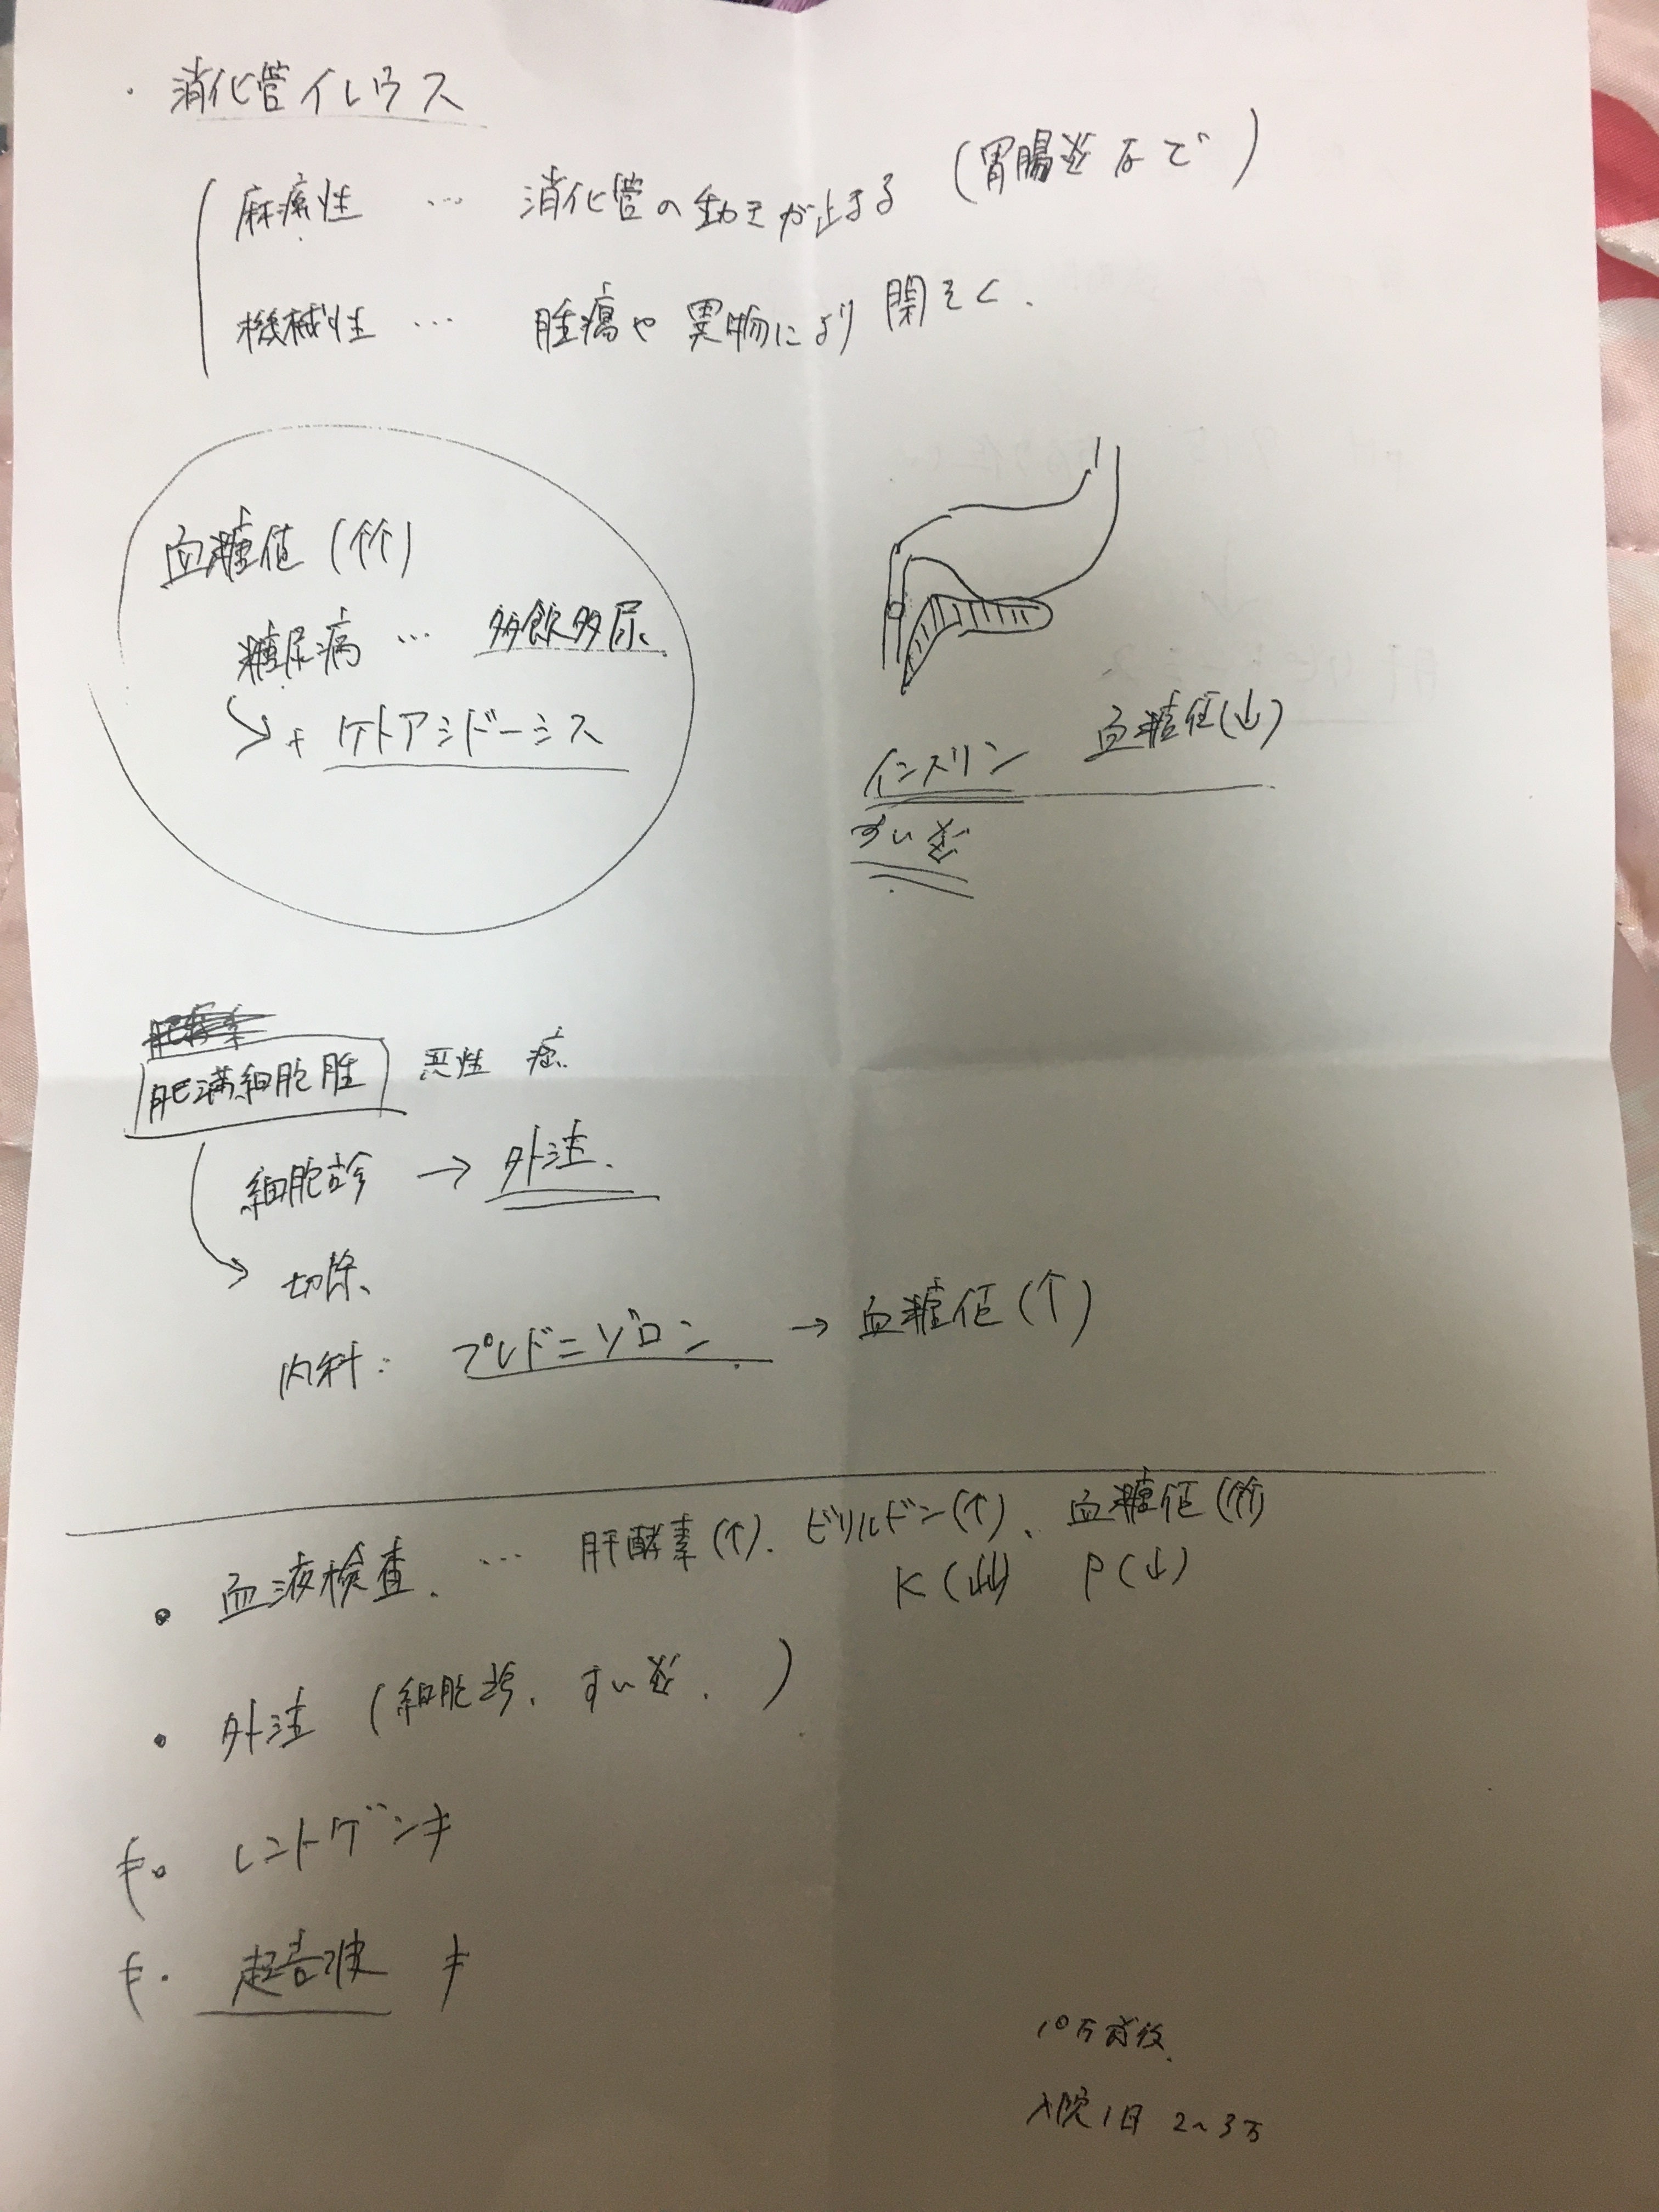 ・消化管イレウス
麻痺性 … 消化管の動きが止まる (胃腸炎など)
機械性 … 腫瘍や異物により閉そく.
血糖値 (↑↑)
糖尿病 … 多飲多尿、
+ ケトアシドーシス
インスリン 血糖値(↓)
すい炎
肥満細胞腫 悪性 癌
細胞診 → 外注.
切除、
内科: プレドニゾロン → 血糖値 (↑)
・血液検査. … 肝酵素 (↑). ビリルビン(↑)、血糖値 (↑↑)
K (↓↓) P (↓)
・外注 (細胞診、すい炎、 )
・レントゲン
・超音波
10万前後.
入院1日 2~3万